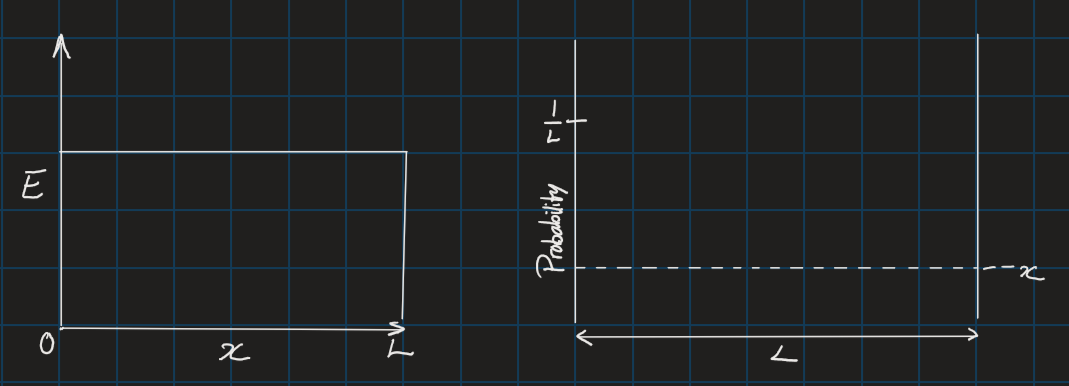 E
0
x
L
1/L
Probability
x
L